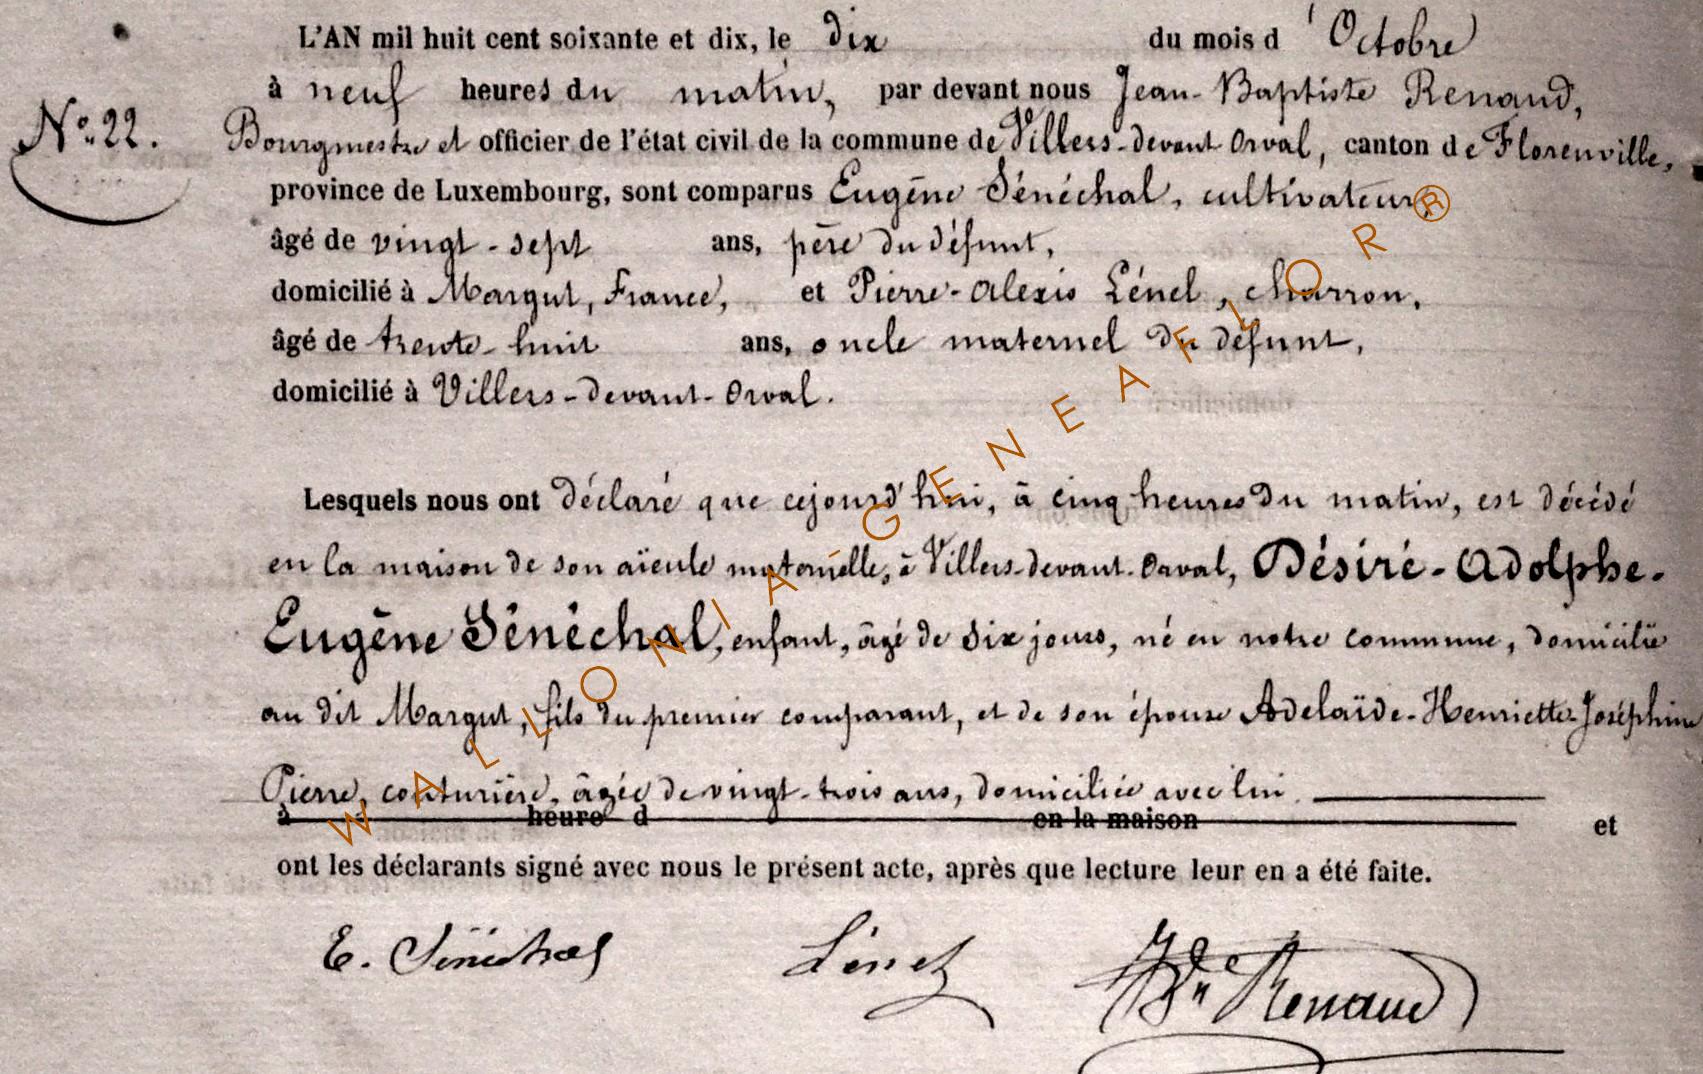 L'AN mil huit cent soixante et dix, le dix du mois d'Octobre
à neuf heures du matin, par devant nous Jean-Baptiste Renaud,
N° 22. Bourgmestre et officier de l'état civil de la commune de Villers-devant Orval, canton de Florenville,
province de Luxembourg, sont comparus Eugène Sénéchal, cultivateur,
âgé de vingt-sept ans, père du défunt,
domicilié à Margut, France, et Pierre-Alexis Lénel, charron,
âgé de trente-huit ans, oncle maternel du défunt,
domicilié à Villers-devant-Orval.
Lesquels nous ont déclaré que cejourd'hui, à cinq heures du matin, est décédé
en la maison de son aïeule maternelle, à Villers-devant-Orval, Désiré-Adolphe-
Eugène Sénéchal, enfant, âgé de six jours, né en notre commune, domicilié
au dit Margut, fils du premier comparant, et de son épouse Adelaïde-Henriette-Joséphine
Pierre, couturière, âgée de vingt-trois ans, domiciliée avec lui
à heure d en la maison et
ont les déclarants signé avec nous le présent acte, après que lecture leur en a été faite.
E. Sénéchal Lénel JBte Renaud
WALLONIA GENEAFLOR ®